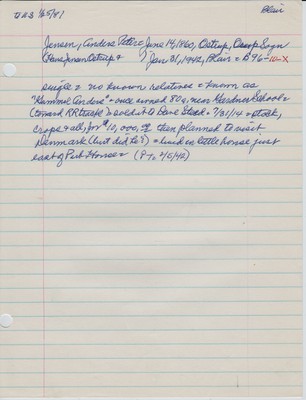 Blair
Jensen, Anders Peter = June 14, 1860, Ostrup, Sogn
Jan 31, 1942, Blair = B 96 -10-X
single = no known relatives = known as
"Rammie Anders" = once owned 80a, near Gardner School =
(toward RR track) & sold it to Dave Stork = 7/31/14 = stock,
crops & all, for $10,000, & then planned to visit
Denmark (but did he?) = lived in little house just
east of Pest House = (P To 2/5/42)